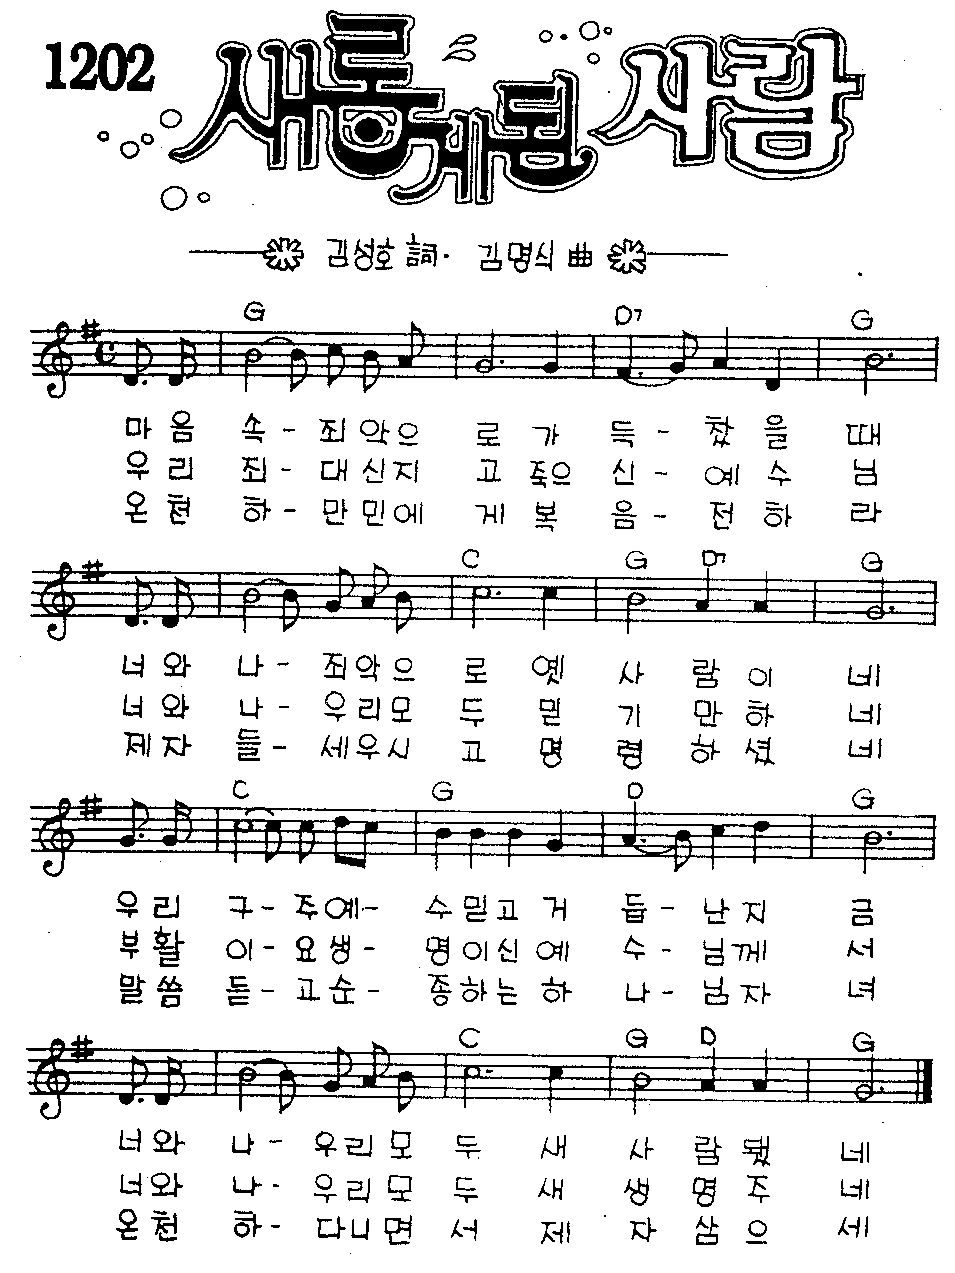 1202
새롭게된 사람
김성호 詞· 김명식 曲
G D7 G
마음 속- 죄악으 로가 득- 찼을 때
우리 죄- 대신지 고죽으 신- 예수 님
온천 하- 만민에 게복 음- 전하 라
C G D7 G
너와 나- 죄악으 로옛 사람이 네
너와 나- 우리모 두믿 기만하 네
제자 들- 세우시 고명 령하셨 네
C G D G
우리 구-주예- 수믿고거 듭-난지 금
부활 이-요생- 명이신예 수-님께 서
말씀 듣-고순- 종하는하 나-님자 녀
C G D G
너와 나- 우리모 두새 사람됐 네
너와 나- 우리모 두새 생명주 네
온천 하- 다니면 서제 자삼으 세